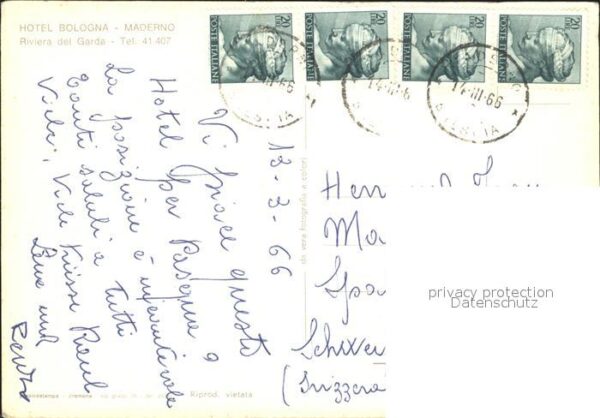 HOTEL BOLOGNA - MADERNO
Riviera del Garda - Tel. 41.407
20 LIRE
POSTE ITALIANE
20 LIRE
POSTE ITALIANE
20 LIRE
POSTE ITALIANE
20 LIRE
POSTE ITALIANE
14-III-66
13-3-66
Vi piace questo
Hotel per Pasqua?
La posizione è incantevole
Tanti saluti a tutti
Viele, Viele Küsse
und
da vera fotografia a colori
Riprod. vietata
Herr und
Ma
Spa
Schwei
(Svizzera
privacy protection
Datenschutz